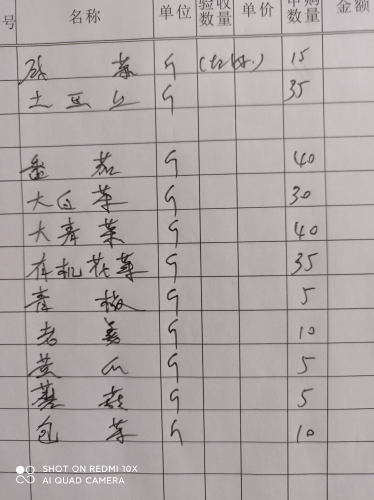 号 名称 单位 验收数量 单价 申购数量 金额
菜 G 15
土豆丝 G 35
番茄 G 40
大白菜 G 30
大青菜 G 40
有机花菜 G 35
青椒 G 5
老姜 G 10
黄瓜 G 5
G 5
包菜 G 10
SHOT ON REDMI 10X
AI QUAD CAMERA